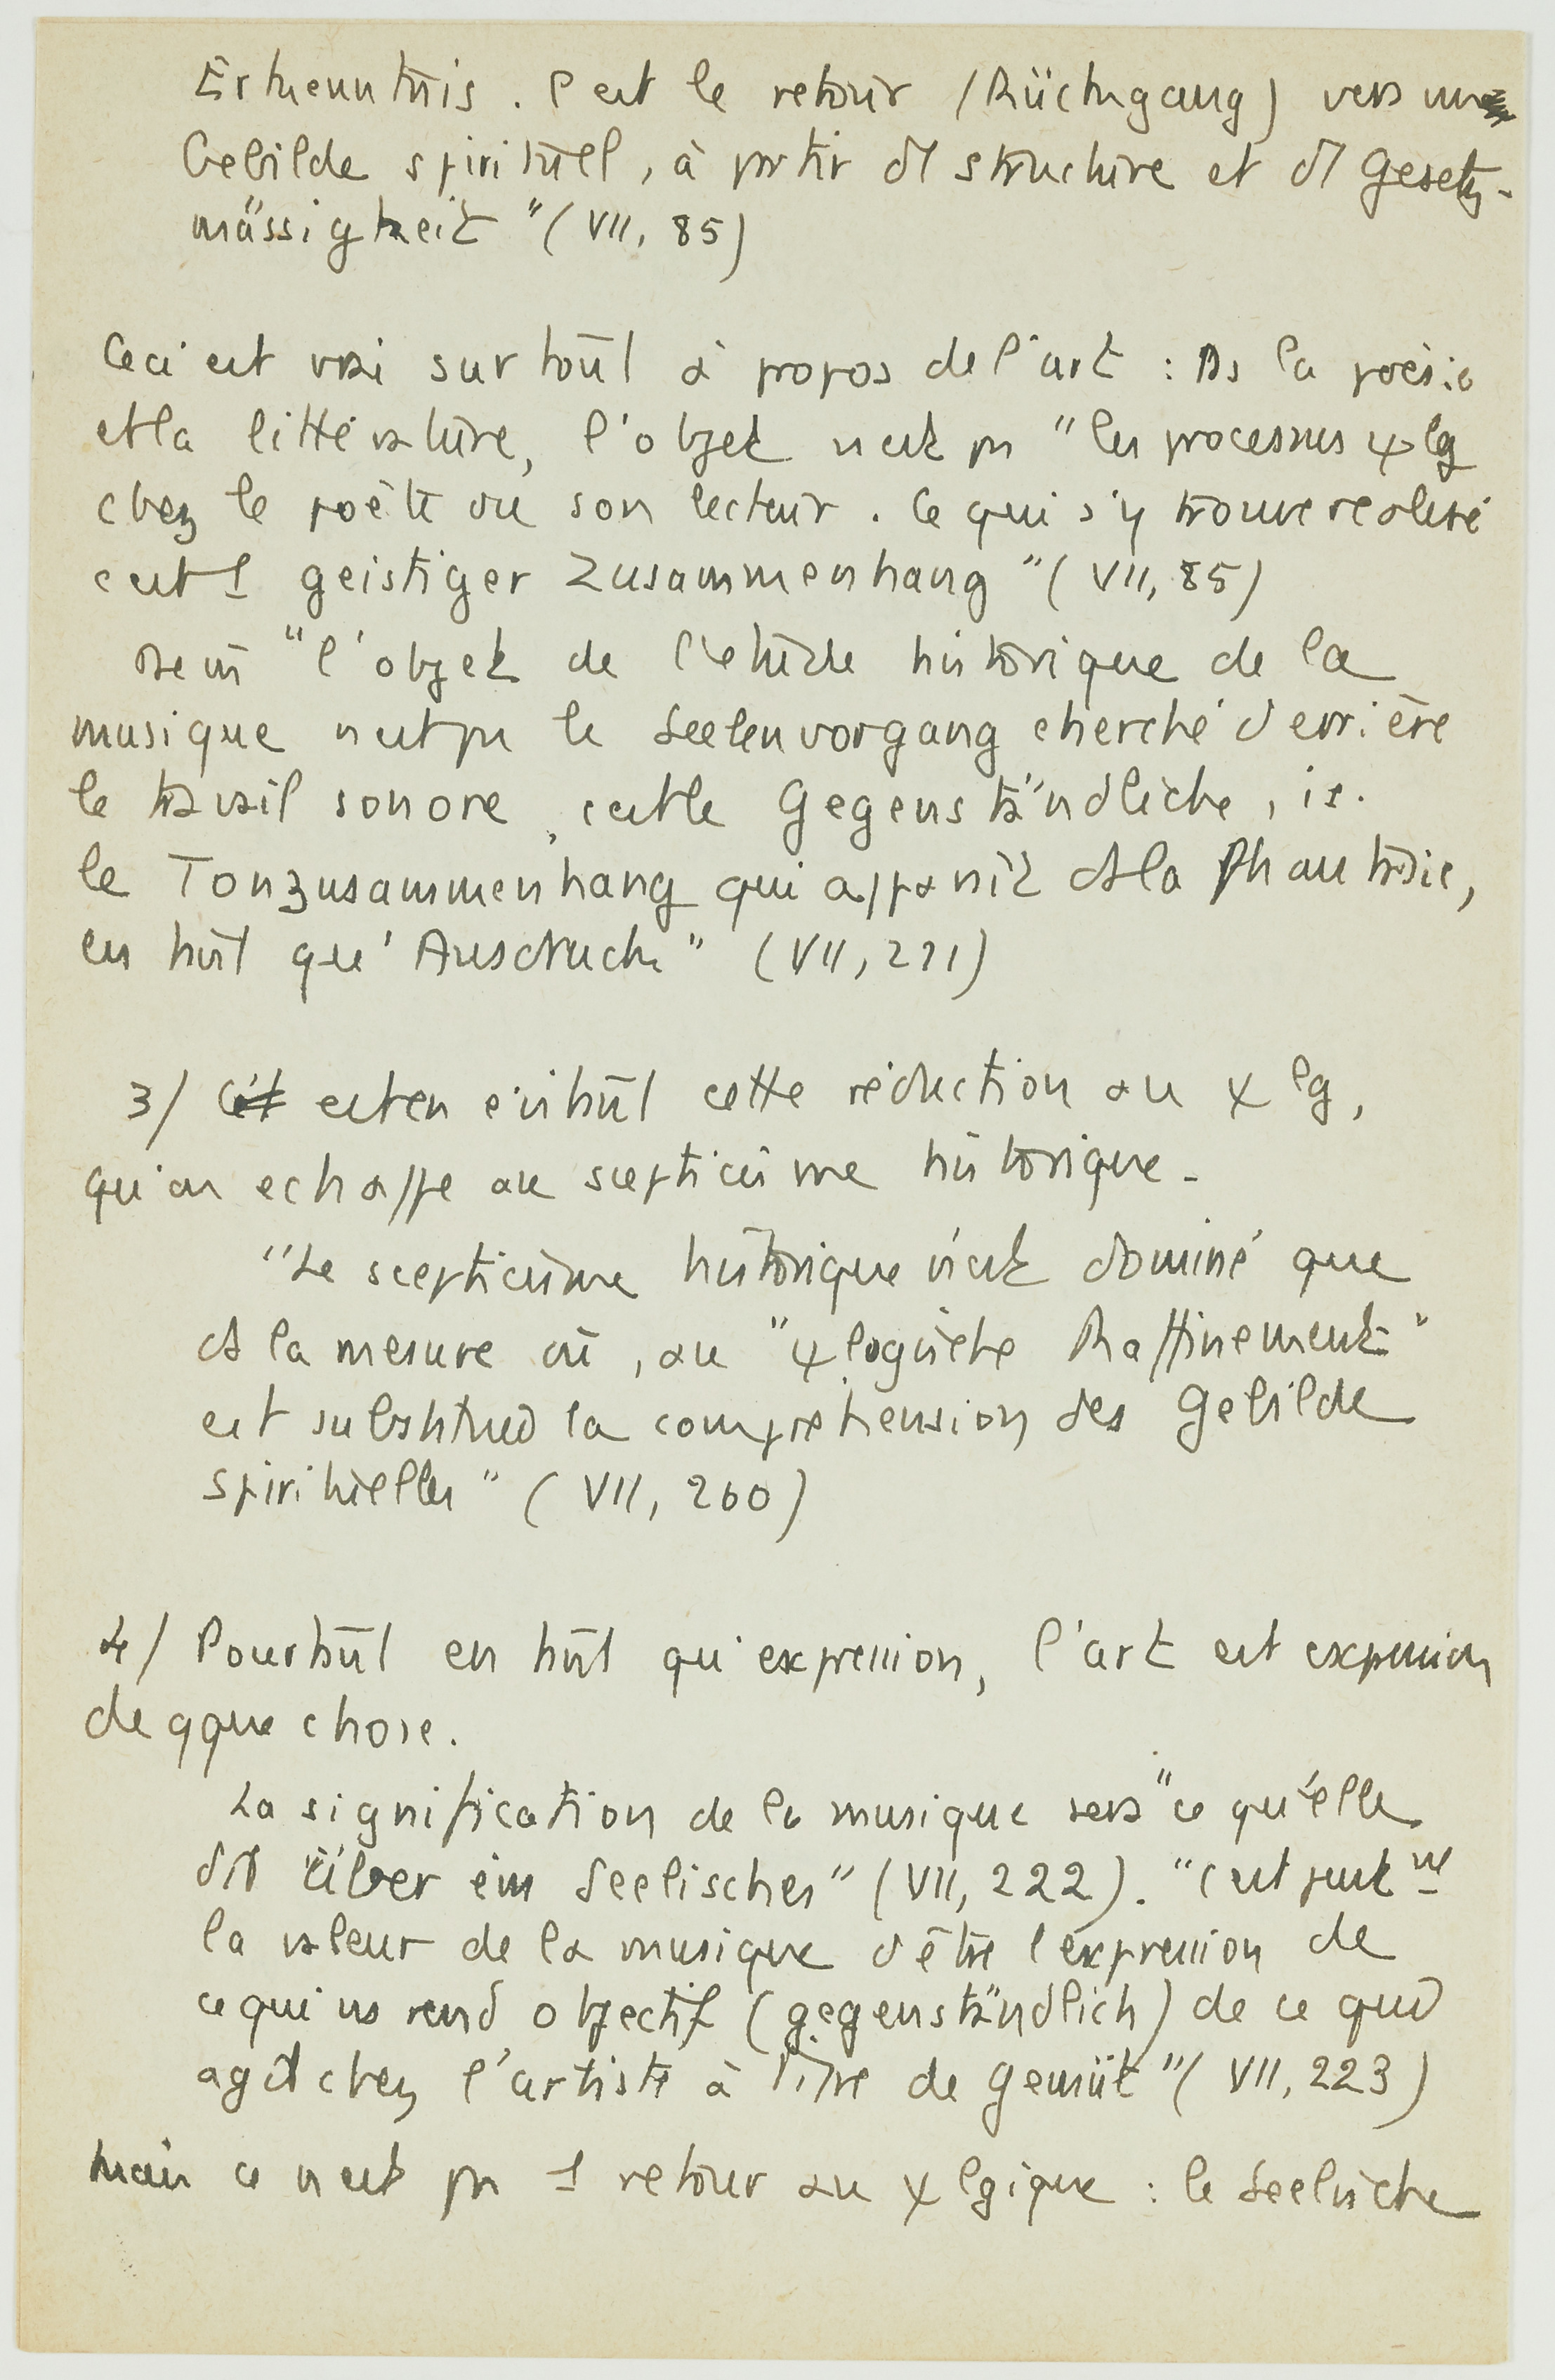 Erkenntnis. C'est le retour (Rückgang) vers un
Gebilde spirituel, à partir de structure et de Gesetz-
mässigkeit" (VII, 85)
Ceci est vrai surtout à propos de l'art : Ds la poésie
et la littérature, l'objet n'est pas "les processus ψlg
chez le poète ou son lecteur. Ce qui s'y trouve réalisé
c'est 1 geistiger Zusammenhang" (VII, 85)
De m̂ "l'objet de l'étude historique de la
musique n'est pas le Seelenvorgang cherché derrière
le travail sonore, c'est le Gegenständliche, i.e.
le Tonzusammenhang qui apparaît ds la Phantasie,
en tant qu'Ausdruck" (VII, 221)
3/ C'est en évitant cette réduction au ψlg,
qu'on echappe au scepticisme historique.
"Le scepticisme historique n'est dominé que
ds la mesure où, au "ψlogische Raffinement"
est substitué la comprehension des Gebilde
spirituelles" (VII, 260)
4/ Pourtant en tant qu'expression, l'art est expression
de qque chose.
La signification de la musique sera "ce qu'elle
dit über ein Seelisches" (VII, 222). "C'est juste nt
la valeur de la musique d'être l'expression de
ce qui ns rend objectif (gegenständlich) de ce qui
agit chez l'artiste à titre de Gemüt" (VII, 223)
Mais ce n'est pas 1 retour au ψlgique : le Seelische